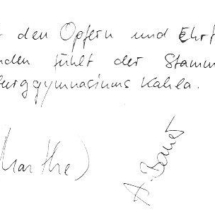 den Opfern und Ehrf
nden fühlt der Stamm
burggymnasiums Kahla.
Marthe)
A. Bauer